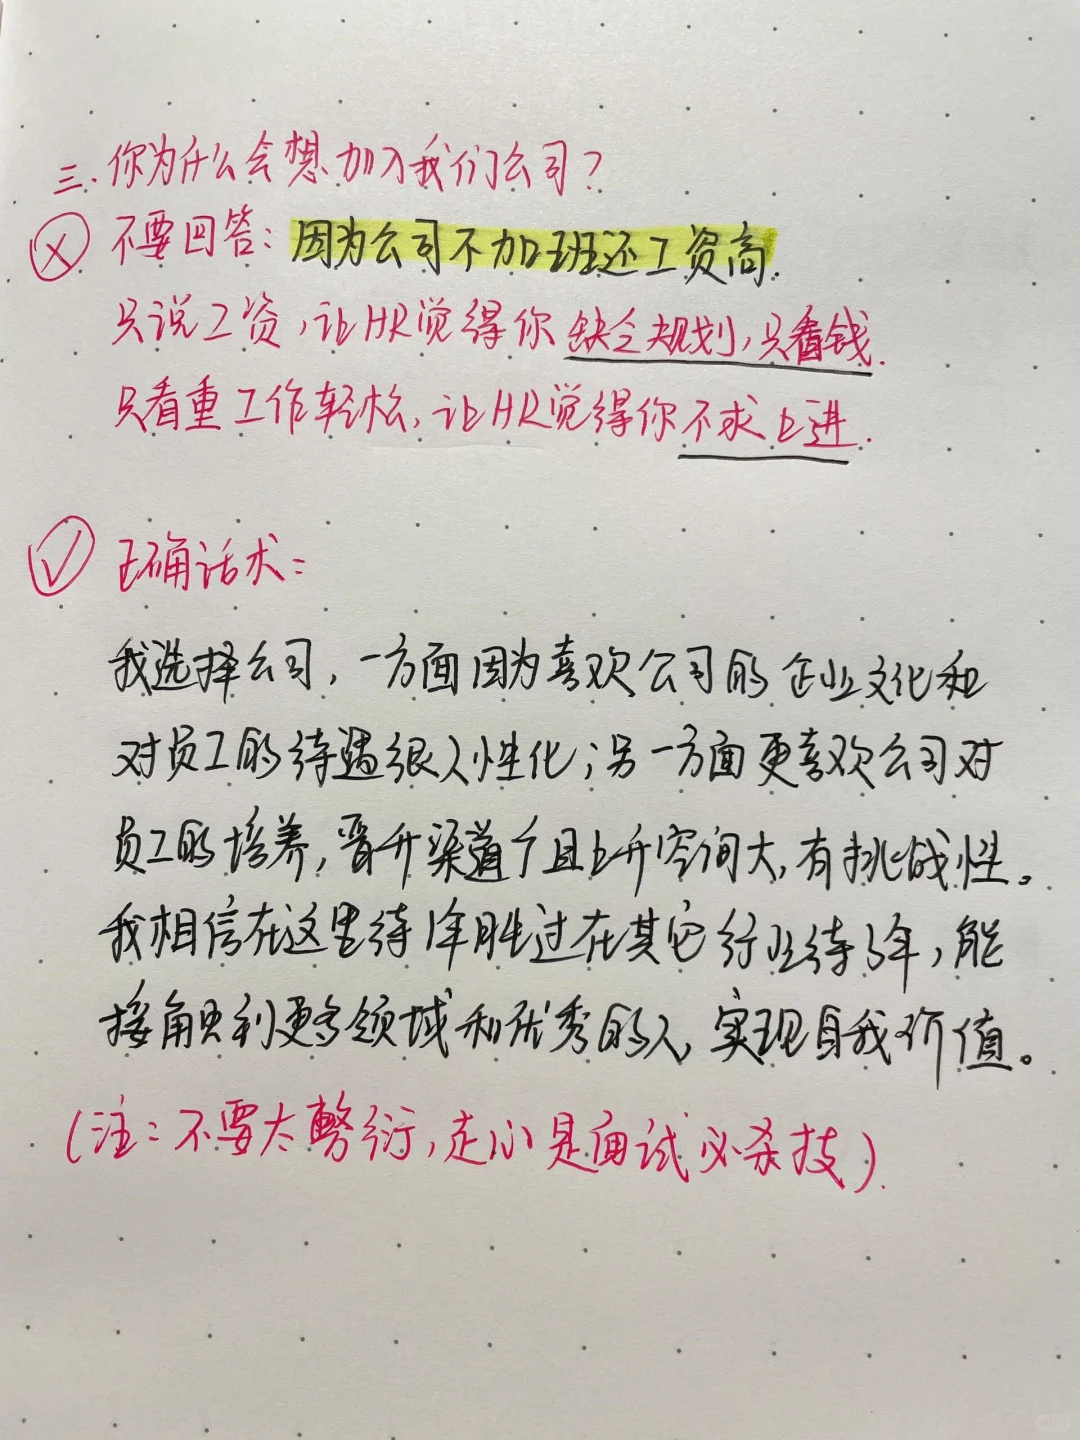 三.你为什么会想加入我们公司?
不要回答:因为公司不加班还工资高.
只说工资,让HR觉得你缺乏规划,只看钱.
只看重工作轻松,让HR觉得你不求上进.
正确话术:
我选择公司,一方面因为喜欢公司的企业文化和
对员工的待遇很人性化;另一方面更喜欢公司对
员工的培养,晋升渠道广且上升空间大,有挑战性。
我相信在这里待1年胜过在其它行业待3年,能
接触到更多领域和优秀的人,实现自我价值。
(注:不要太敷衍,走心是面试必杀技).